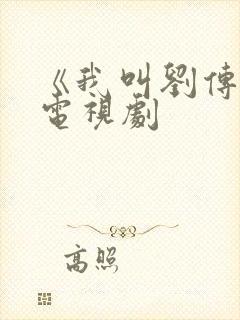 《我叫劉傳
電視劇
高照